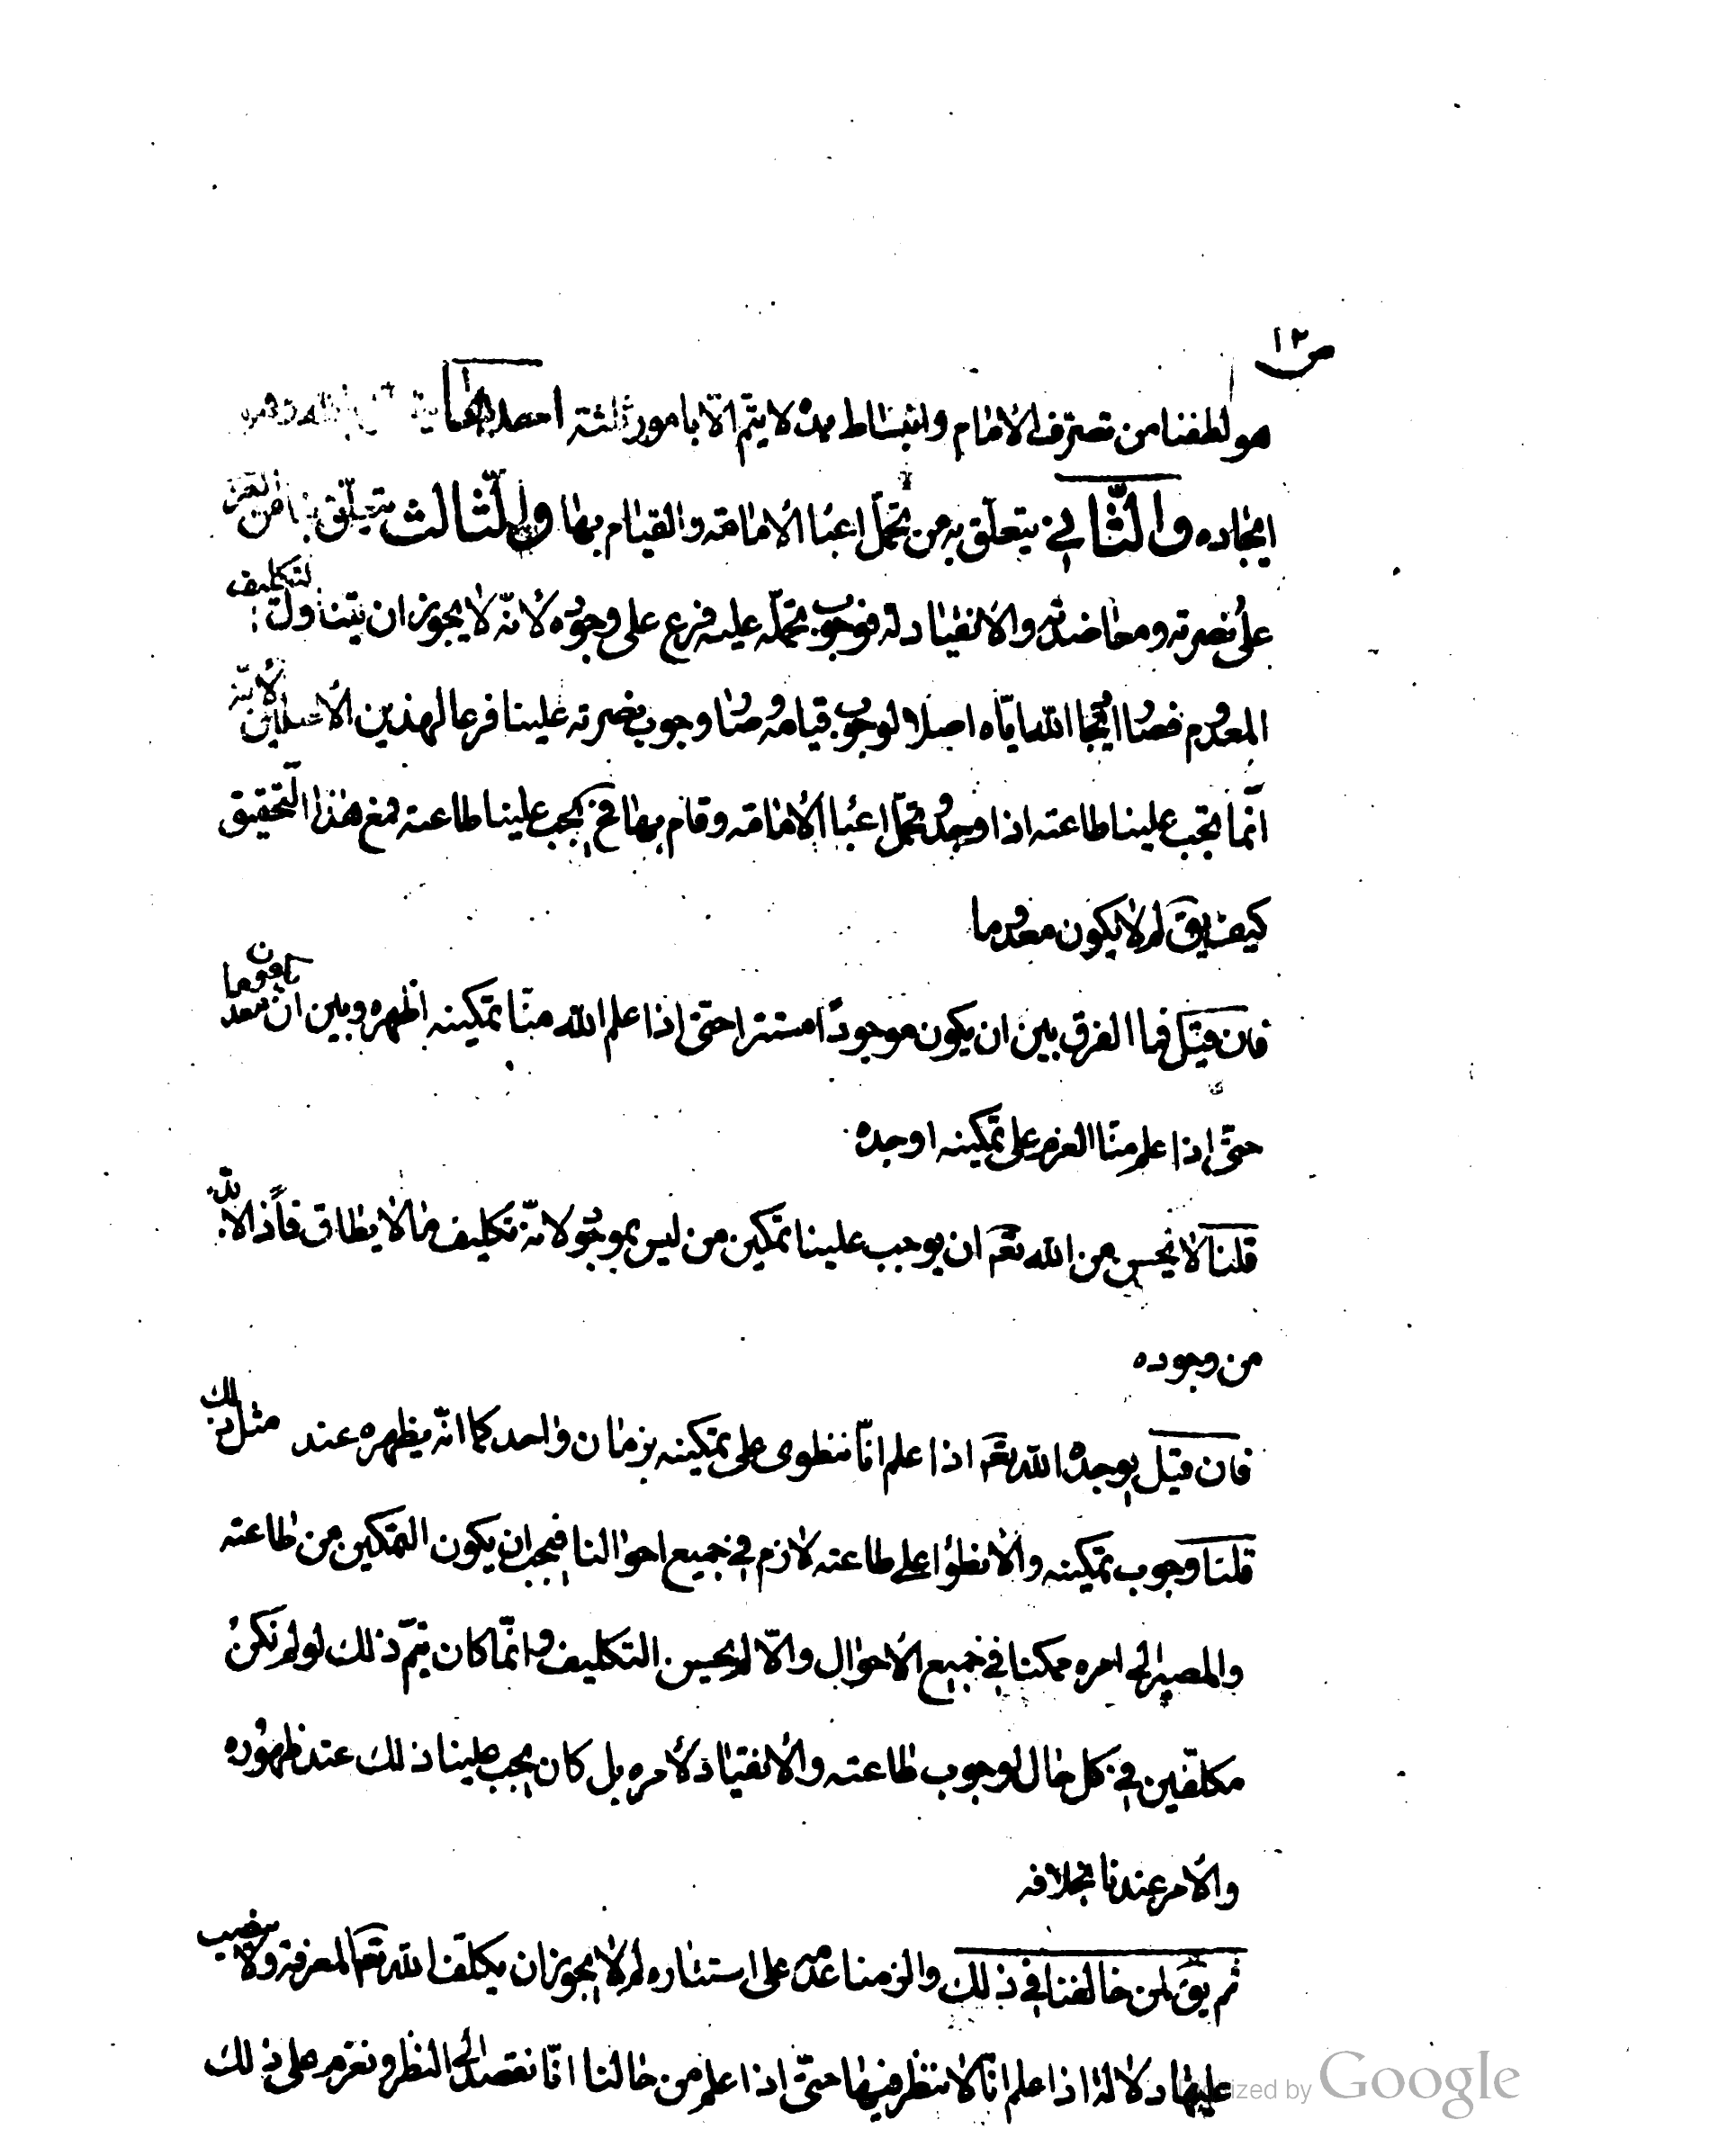 ص ١٢
هو لطفنا من تصرف الامام وانبساط يده لا يتم الا بامور ثلثة احدها
ايجاده والثاني يتعلق به من تحمل اعباء الامامة والقيام بها والثالث يتعلق بنا من العزم
على نصرته ومعاضدته والانقياد له فوجوب تحمله عليه فرع على وجوده لانه لا يجوز ان يتناول التكليف
المعدوم فصار ايجاد الله اياه اصلا لوجوب قيامه وصار وجوب نصرته علينا فرعا لهذين الاصلين لانه
انما تجب علينا طاعته اذا وجد وتحمل اعباء الامامة وقام بها فح يجب علينا طاعته فمع هذا التحقيق
كيف يق لم لا يكون معدوما
فان قيل فما الفرق بين ان يكون موجودا مستترا حتى اذا علم الله منا تمكينه اظهره وبين ان يكون معدوما
حتى اذا علم منا العزم على تمكينه اوجده
قلنا لا يحسن من الله تع ان يوجب علينا تمكين من ليس بموجود لانه تكليف ما لا يطاق فاذا لا بد
من وجوده
فان قيل يوجده الله تع اذا علم انا ننطوى على تمكينه بزمان واحد كما انه يظهره عند مثل ذلك
قلنا وجوب تمكينه والانطواء على طاعته لازم في جميع احوالنا فيجب ان يكون التمكين من طاعته
والمصير الى امره ممكنا في جميع الاحوال والا لم يحسن التكليف وانما كان يتم ذلك لو لم نكن
مكلفين في كل حال لوجوب طاعته والانقياد لامره بل كان يجب علينا ذلك عند ظهوره
والامر عندنا بخلافه
ثم يق لمن خالفنا في ذلك والزمنا عدمه على استتاره لم لا يجوز ان يكلف الله تع المعرفة ولا ينصب
عليها دلالة اذا علم انا لا ننظر فيها حتى اذا علم من حالنا انا نقصد الى النظر ونعزم على ذلك
Digitized by Google